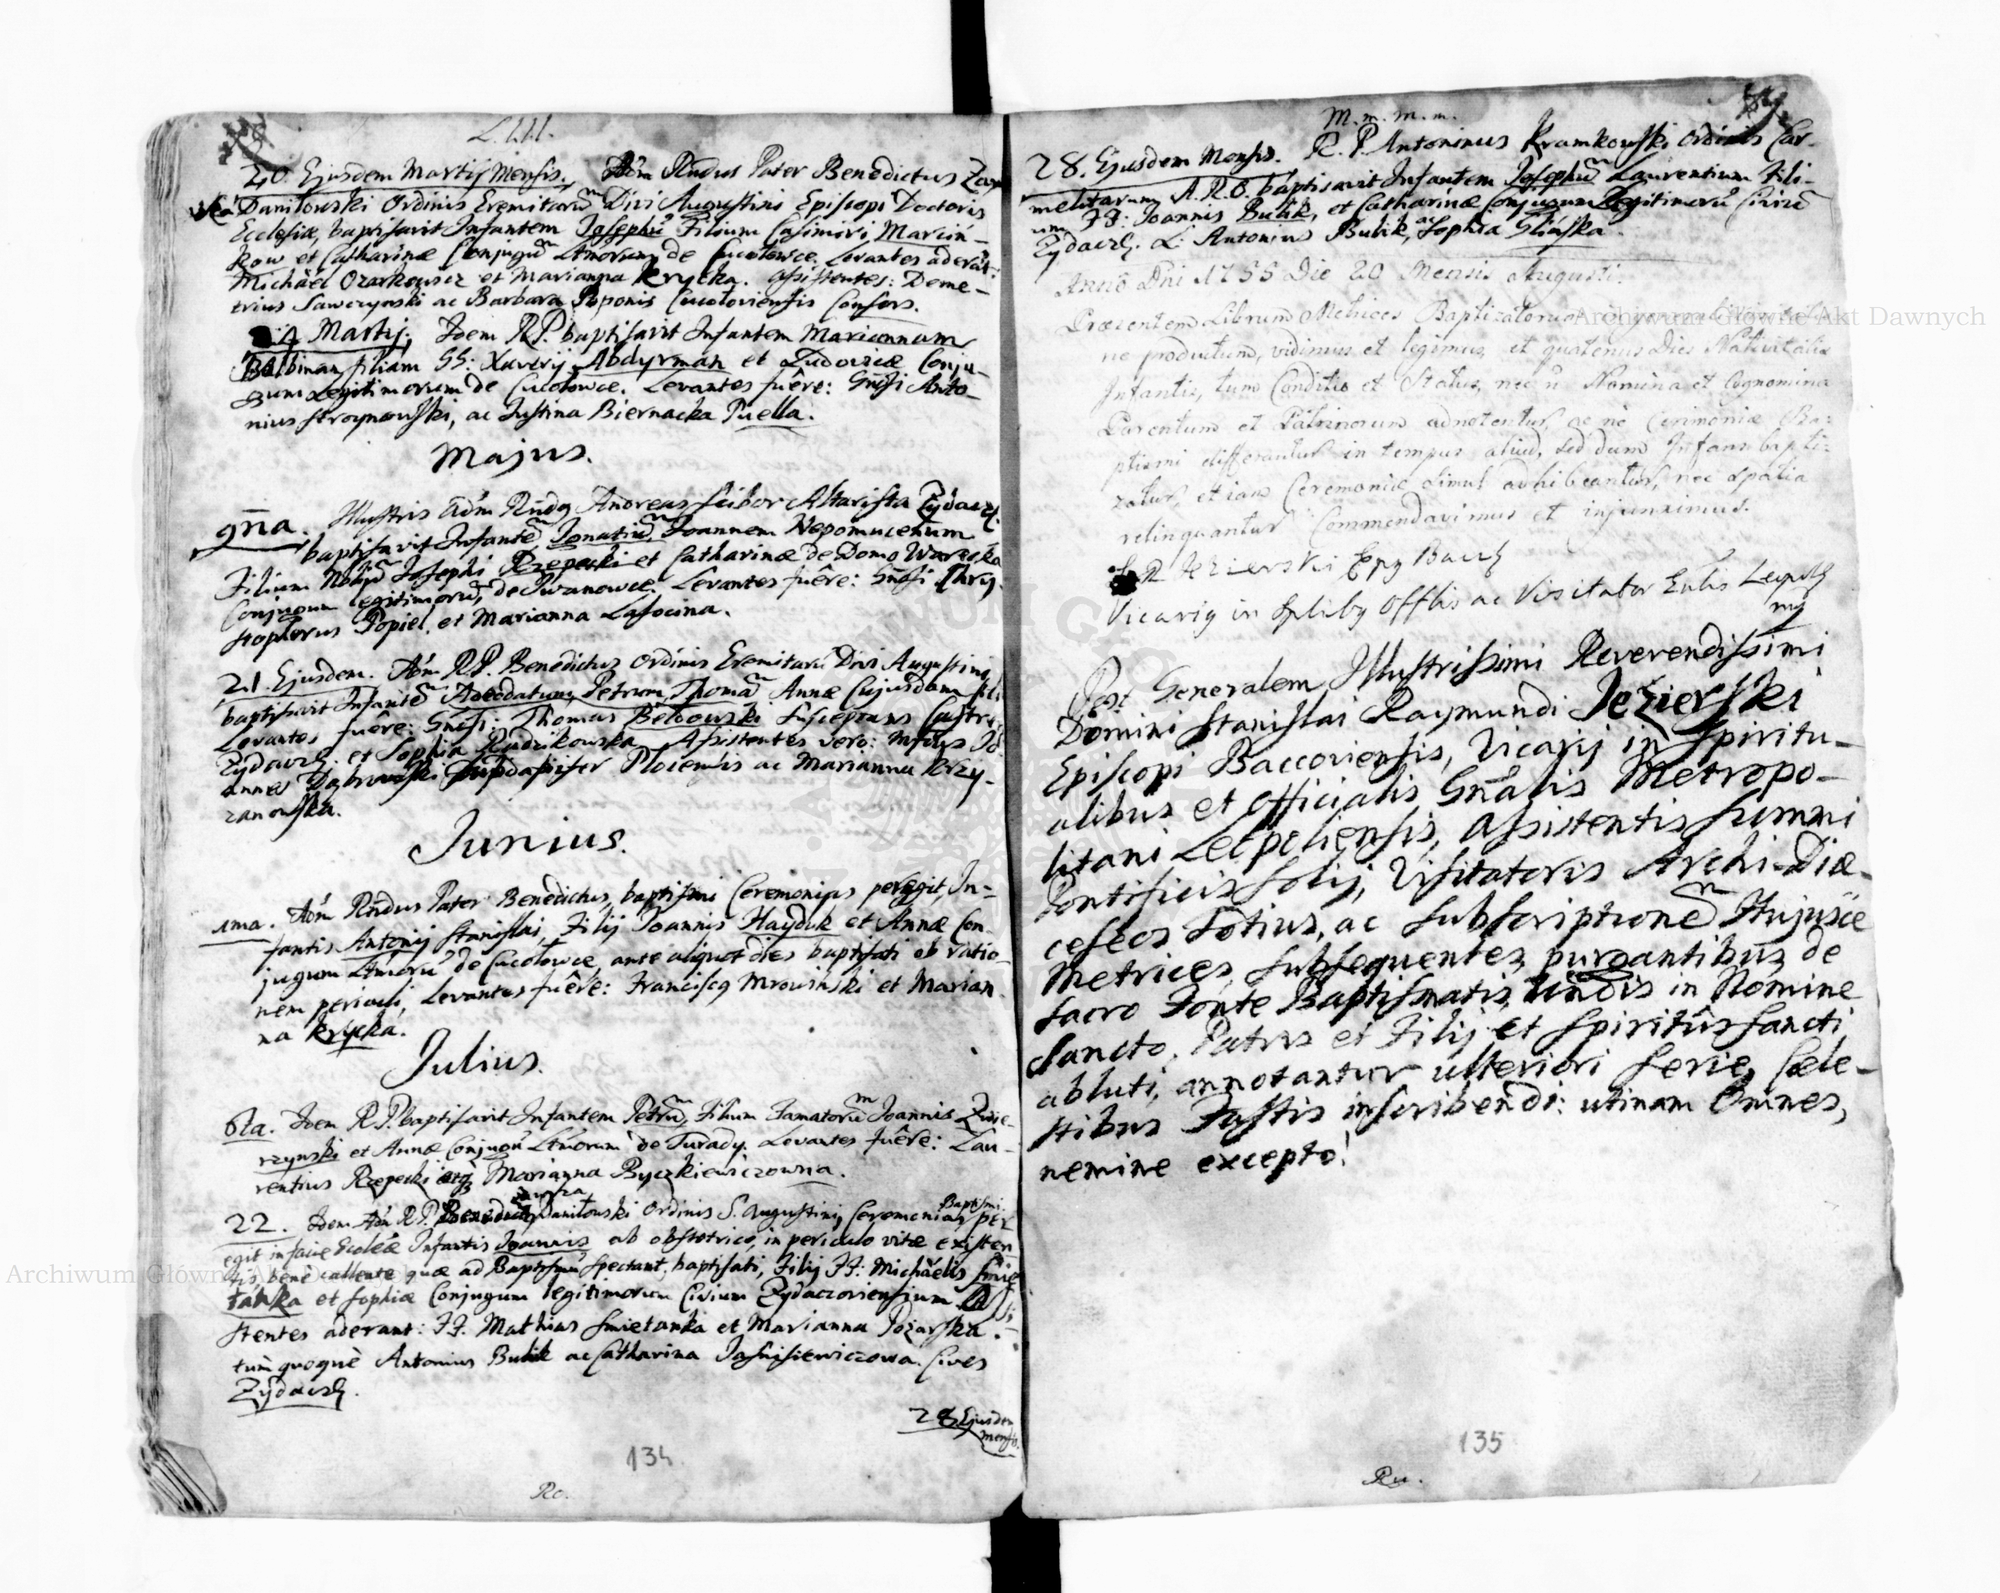 L.lll.
20. Ejusdem Martij Mensis. Adm Rndus Pater Benedictus
Daniłowski Ordinis Eremitarũ Divi Augustini Episcopi Doctoris
Ecclesiæ, baptisavit Infantem Josephũ Filium Casimiri Marcin-
kow et Catharinæ Conjugũ Ltmorum de Cucołowce. Levantes aderãt:
Michäel Ozarkowicz et Marianna Krycka. Assistentes: Deme-
trius Sawczynski ac Barbara Poponis Cucoloviensis Consors.
Martij. Idem R.P. baptisavit Infantem Mariannam
Balbinam filiam GG: Xaverij Abdyrman et Ludovicæ Conju-
gum Legitimorum de Cucołowce. Levantes fuêre: Gñosi Anto-
nius Stroynowski, ac Justina Biernacka Puella.
Majus.
9na. Illustris Adm Rndg Andreas Scibor Altarista Zydacz.
baptisavit Infantẽ Ignatiũ Joannem Nepomucenum
Filium Nobiliũ Josephi Rzepecki et Catharinæ de Domo Warecka
Conjugum legitimorũ, de Iwanowce. Levantes fuêre: Gñosi Chry-
stophorus Popiel, et Marianna Lasocina.
21. Ejusdem. Adm R.P. Benedictus Ordinis Eremitarũ Divi Augustini,
baptisavit Infantẽ Adeodatum, Petrum, Thomã Annæ Cujusdam
Levantes fuêre: Gñosi: Thomas Bełdowski Susceptans Castren
Zydacz. et Sophia Rudzikowska. Assistentes vero: Mfcus Jo-
annes Dąbrowski Subdapifer Plocensis ac Marianna Krzy-
zanowska.
Junius.
1ma. Adm Rndus Pater Benedictus, baptismi Ceremonias peregit, In-
fantis Antonij Stanislai, Filij Joannis Hayduk et Annæ Con-
jugum Ltmorũ de Cucołowce, ante aliquot dies baptisati ob ratio-
nem periculi, Levantes fuêre: Franciscg Mrowinski et Marian-
na Krycka.
Julius.
6ta. Idem R.P. baptisavit Infantem Petrũ, Filium Famatorũ Joannis Zwie-
rzynski et Annæ Conjugũ Ltmorum de Turady. Levantes fuêre: Lau-
rentius Rzepecki atq Marianna Byczkiewiczowna.
22. Idem Adm R.P. Benedictg Daniłowski Ordinis S. Augustini, Ceremonias Baptismi per-
egit in facie Ecclæ Infantis Joannis ab obstetrice, in periculo vitæ existen-
tis, benè callente quæ ad Baptismũ spectant, baptisati, Filij FF: Michäelis Smie-
tanka et Sophiæ Conjugum legitimorum Civium Zydaczoviensium. Assi-
stentes aderant: FF. Mathias Smietanka et Marianna Pożarska.
tum quoquè Antonius Bulik ac Catharina Jasnisiewiczowa. Cives
Zydacz.
28 Ejusdem
mensis.
134
Ro.
M.m.m.m.
28. Ejusdem Mensis. R.P. Antoninus Kramkowski Ordinis Car-
melitarum A.R.O. baptisavit Infantem Josephũ Laurentium Fili-
um FF: Joannis Bulik, et Catharinæ Conjugum Legitimorũ Civiũ
Zydacz. L: Antonius Bulik, ac Sophia Glińska.
Anno Dni 1755 Die 20 Mensis Augusti.
Præsentem Librum Metrices Baptizatorum
ne productum, vidimus et legimus, et quatenus Dies Nativitatis
Infantis, tum Conditio et Status, nec ñ Nomina et Cognomina
Parentum et Patrinorum adnotentur, ac nè Cerimoniæ Ba-
ptismi differantur in tempus aliud, sed dum Infans bapti-
zatur, etiam Ceremoniæ simul adhibeantur, nec spatia
relinquantur Commendavimus et injunximus.
S R Jezierski Epg Bacc
Vicarig in Splibg Offlis ac Visitator Gnlis Leopol
mp
Post Generalem Illustrissimi Reverendissimi
Domini Stanislai Raymundi Jezierski
Episcopi Baccoviensis, Vicarij in Spiritu-
alibus et Officialis Gñalis Metropo-
litani Leopoliensis, Assistentis Summi
Pontificis Solij, Visitatoris Archi-Diæ-
ceseos Totius, ac Subscriptionẽ Hujusce
Metrices, Subsequentes purgantibus de
Sacro Fonte Baptismatis Undis in Nomine
Sancto, Patris et Filij et Spiritûs Sancti
abluti, annotantur ulteriori Serie, Cæle-
stibus Fastis inscribendi: utinam Omnes,
nemine excepto!
135
Ru.
Archiwum Główne Akt Dawnych
Archiwum Główne Akt Dawnych